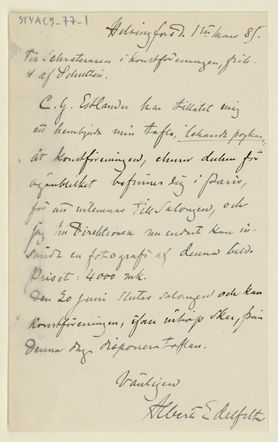 STYAC9-77-1
Helsingfors d. 1 Mars 85.
Till Sekreteraren i Konstföreningen, frih.
af Schultén.
C. G. Estlander har tillåtit mig
att hembjuda min tafla, "Lekande poykar",
åt Konstföreningen, ehuru duken för
ögonblicket befinner sig i Paris,
för att inlemnas till Salongen, och
jag för Direktionen nu endast kan in-
sända en fotografi af denna bild.
Priset: 4000 mk.
Den 20 juni slutas salongen och kan
Konstföreningen, ifall inköp sker, från
denna dag disponera taflan.
Vänligen
Albert Edelfelt